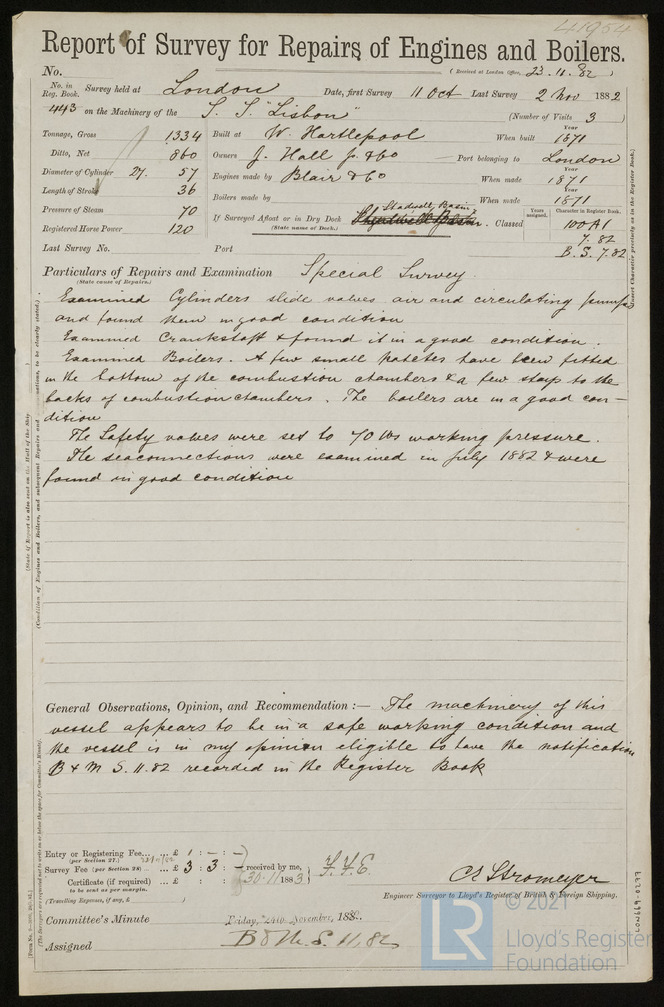 41954
Report of Survey for Repairs of Engines and Boilers.
No. (Received at London Office, 23.11.82)
No. in Reg. Book. Survey held at London Date, first Survey 11 Oct Last Survey 2 Nov 1882
443 on the Machinery of the S. S. "Lisbon" (Number of Visits 3)
Tonnage, Gross 1334 Built at W. Hartlepool When built Year 1871
Ditto, Net 860 Owners J. Hall Jr & Co Port belonging to London
Diameter of Cylinder 27. 57 Engines made by Blair & Co When made Year 1871
Length of Stroke 36 Boilers made by When made Year 1871
Pressure of Steam 70 If Surveyed Afloat or in Dry Dock Basin. Classed Years assigned. Character in Register Book. 100A1
(State name of Dock.)
Registered Horse Power 120 7.82
Last Survey No. Port B.S. 7.82
Particulars of Repairs and Examination Special Survey.
(State cause of Repairs.)
Examined Cylinders slide valves air and circulating pumps
and found them in good condition
Examined Crankshaft & found it in a good condition.
Examined Boilers. A few small patches have been fitted
in the bottom of the combustion chambers & a few stays to the
backs of combustion chambers. The boilers are in a good con-
dition
The Safety valves were set to 70 lbs working pressure.
The seaconnections were examined in July 1882 & were
found in good condition
General Observations, Opinion, and Recommendation :— The machinery of this
vessel appears to be in a safe working condition and
the vessel is in my opinion eligible to have the notification
B & M S. 11.82 recorded in the Register Book
Entry or Registering Fee... ... £ 1 : - : -
(per Section 27.)
Survey Fee (per Section 28) ... £ 3 : 3 : - received by me,
Certificate (if required) ... £ : : 30.11 1883
to be sent as per margin.
(Travelling Expenses, if any, £ )
C E Stromeyer
Engineer Surveyor to Lloyd's Register of British & Foreign Shipping.
Committee's Minute Friday, 24th November, 188
Assigned B & M. S. 11,82
LR © 2021
Lloyd's Register
Foundation